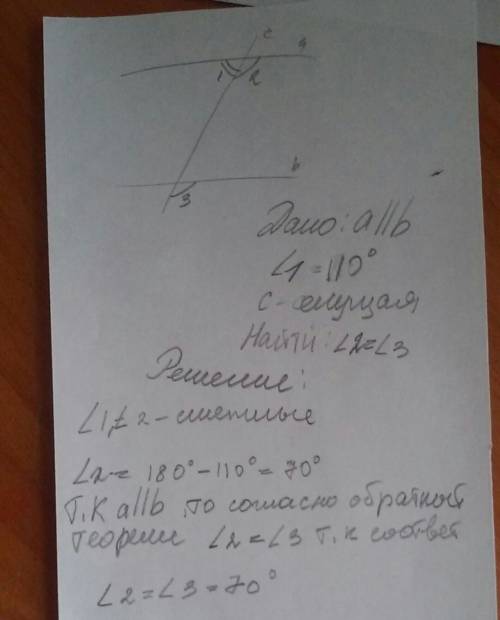 c
a
1 2
b
3
Дано: a||b
∠1 = 110°
c - секущая
Найти: ∠2=∠3
Решение:
∠1,∠2 - смежные
∠2 = 180° - 110° = 70°
Т.к a||b, то согласно обратной
теореме ∠2 = ∠3 т.к соответ
∠2 = ∠3 = 70°